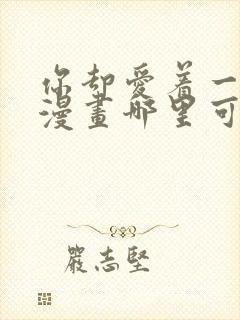 你却愛着一
漫畫哪里可
嚴志堅